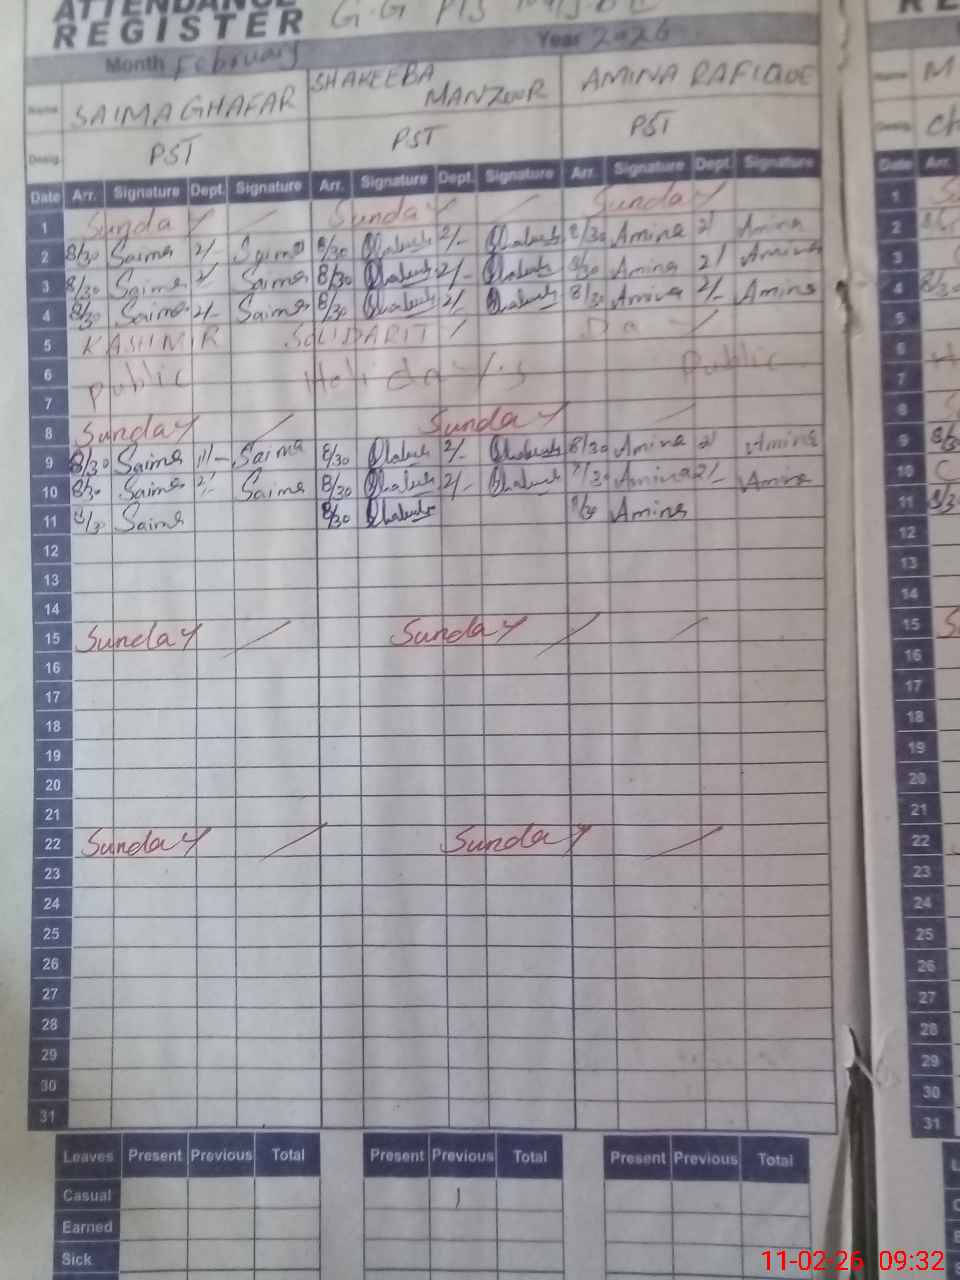 ATTENDANCE
REGISTER G.G P/S
Month February Year 2026
Name SAIMA GHAFAR SHAKEEBA MANZOOR AMINA RAFIQUE
Desig. PST PST PST
Date Arr. Signature Dept. Signature Arr. Signature Dept. Signature Arr. Signature Dept. Signature
1 Sunday Sunday Sunday
2 8/30 Saima 2/- Saima 8/30 2/- 8/30 Amina 2/ Amina
3 8/30 Saima 2/ Saima 8/30 2/- 8/30 Amina 2/ Amina
4 8/30 Saima 2/- Saima 8/30 2/ 8/30 Amina 2/- Amina
5 KASHMIR SOLIDARITY Day
6 Public Holiday's Public
7
8 Sunday Sunday
9 8/30 Saima Saima 8/30 2/- 8/30 Amina 2/ Amina
10 8/30 Saima 2/- Saima 8/30 2/- Amina 2/- Amina
11 8/30 Saima 8/30 Amina
12
13
14
15 Sunday Sunday
16
17
18
19
20
21
22 Sunday Sunday
23
24
25
26
27
28
29
30
31
Leaves Present Previous Total Present Previous Total Present Previous Total
Casual 1
Earned
Sick
Name M
Desig. Ch
Date Arr.
1
2
3
4 8/30
5
6
7
8
9 8/30
10
11 8/30
12
13
14
15
16
17
18
19
20
21
22
23
24
25
26
27
28
29
30
31
11-02-26 09:32